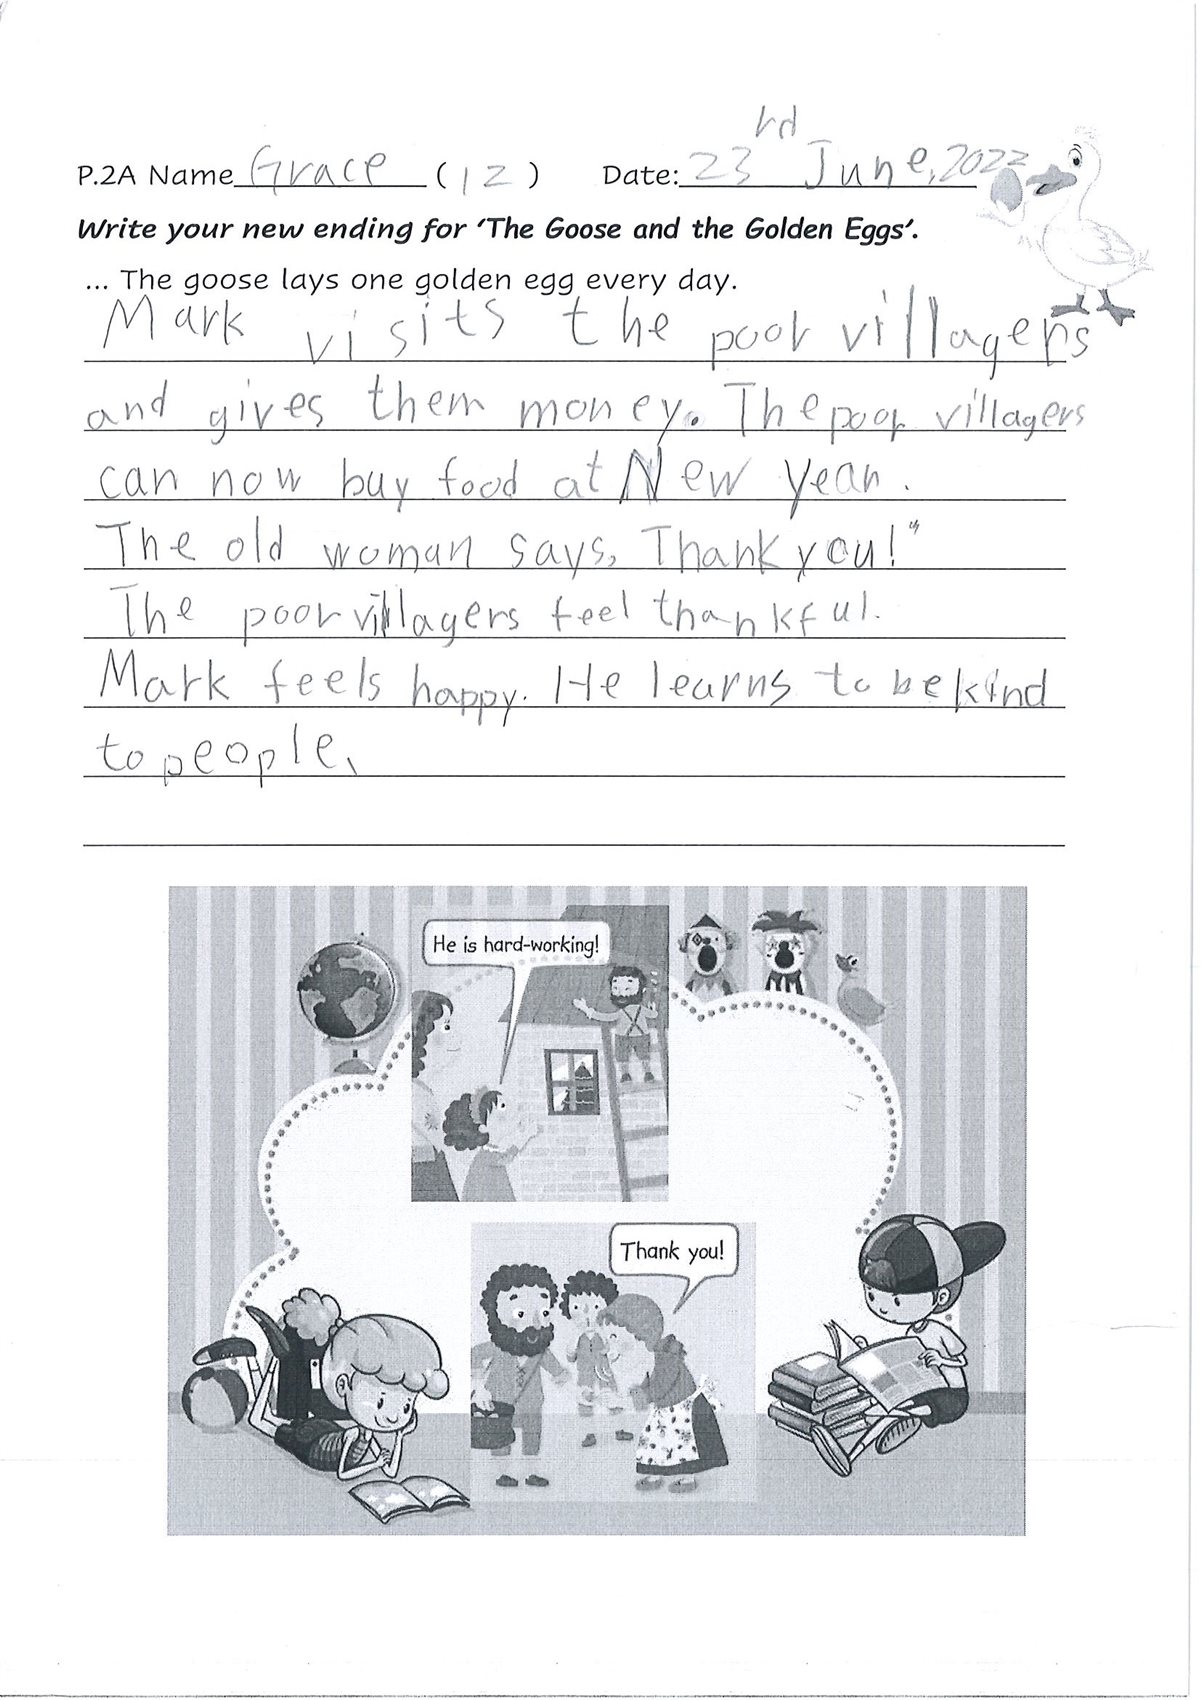 rd
P.2A Name Grace (12) Date: 23 June, 2022
Write your new ending for ‘The Goose and the Golden Eggs’.
... The goose lays one golden egg every day.
Mark visits the poor villagers
and gives them money. The poor villagers
can now buy food at New year.
The old woman says, Thank you!"
The poor villagers feel thankful.
Mark feels happy. He learns to be kind
to people.
He is hard-working!
Thank you!